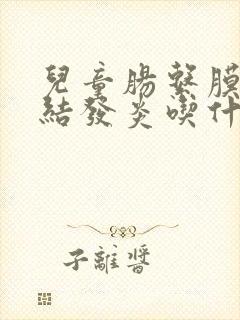 兒童腸繫膜
結發炎喫什
子離醬